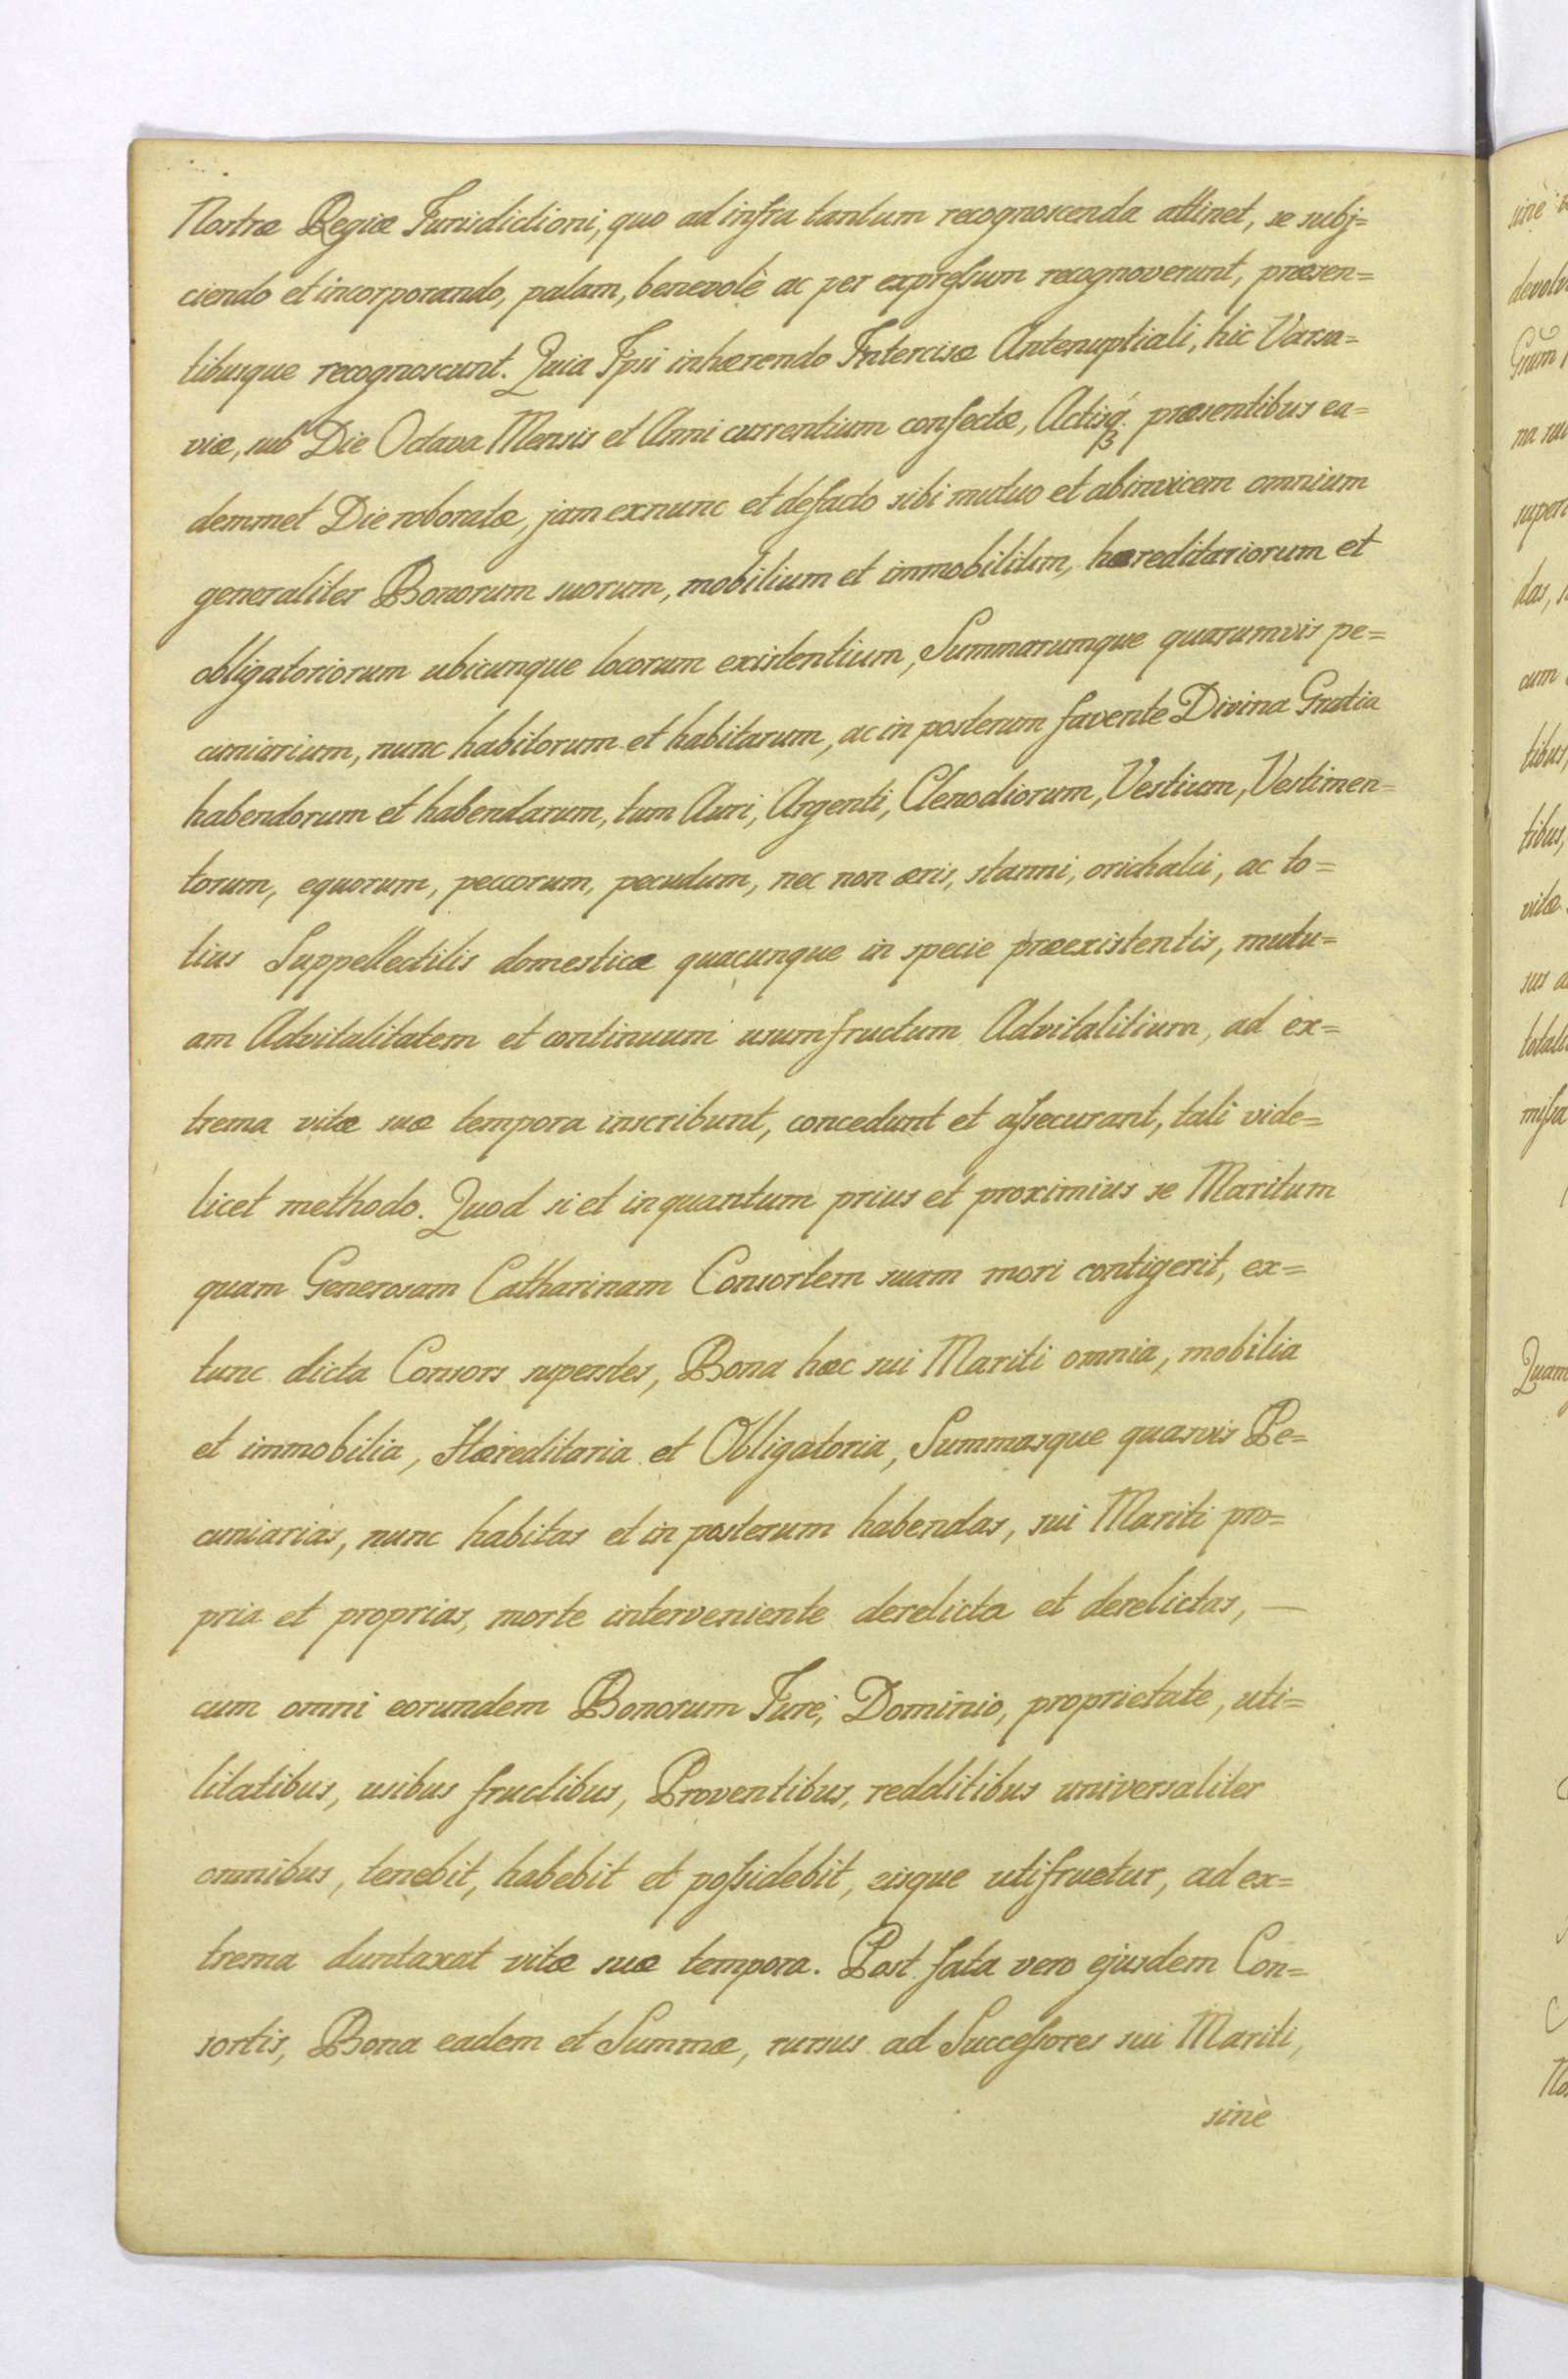 Nostræ Regiæ Jurisdictioni, quo ad infra tantum recognoscenda attinet, se subj=
ciendo et incorporando, palam, benevolè ac per expreſsum recognoverunt, præsen=
tibusque recognoscunt. Quia Ipsi inhærendo Intercisæ Antenuptiali, hic Varsa=
viæ, sub Die Octava Mensis et Anni currentium confectæ, Actisq́ꝫ præsentibus ea=
demmet Die roboratæ, jam exnunc et defacto sibi mutuo et abinvicem omnium
generaliter Bonorum suorum, mobilium et immobilium, hæreditariorum et
obligatoriorum ubicunque locorum existentium, Summarumque quarumvis pe=
cuniarium, nunc habitorum et habitarum, ac in posterum favente Divina Gratia
habendorum et habendarum, tum Auri, Argenti, Clenodiorum, Vestium, Vestimen=
torum, equorum, peccorum, pecudum, nec non æris, stanni, orichalci, ac to=
tius Suppellectilis domesticæ quacunque in specie præexistentis, mutu=
am Advitalitatem et continuum usumfructum Advitalitium, ad ex=
trema vitæ suæ tempora inscribunt, concedunt et aſsecurant, tali vide=
licet methodo. Quod si et inquantum prius et proximius se Maritum
quam Generosam Catharinam Consortem suam mori contigerit, ex=
tunc dicta Consors superstes, Bona hæc sui Mariti omnia, mobilia
et immobilia, Hæreditaria et Obligatoria, Summasque quasvis Pe=
cuniarias, nunc habitas et in posterum habendas, sui Mariti pro=
pria et proprias, morte interveniente derelicta et derelictas, —
cum omni eorundem Bonorum Jure, Dominio, proprietate, uti=
litatibus, usibus fructibus, Proventibus, redditibus universaliter
omnibus, tenebit, habebit et poſsidebit, eisque utifruetur, ad ex=
trema duntaxat vitæ suæ tempora. Post fata vero ejusdem Con=
sortis, Bona eadem et Summæ, rursus ad Succeſsores sui Mariti,
sinè